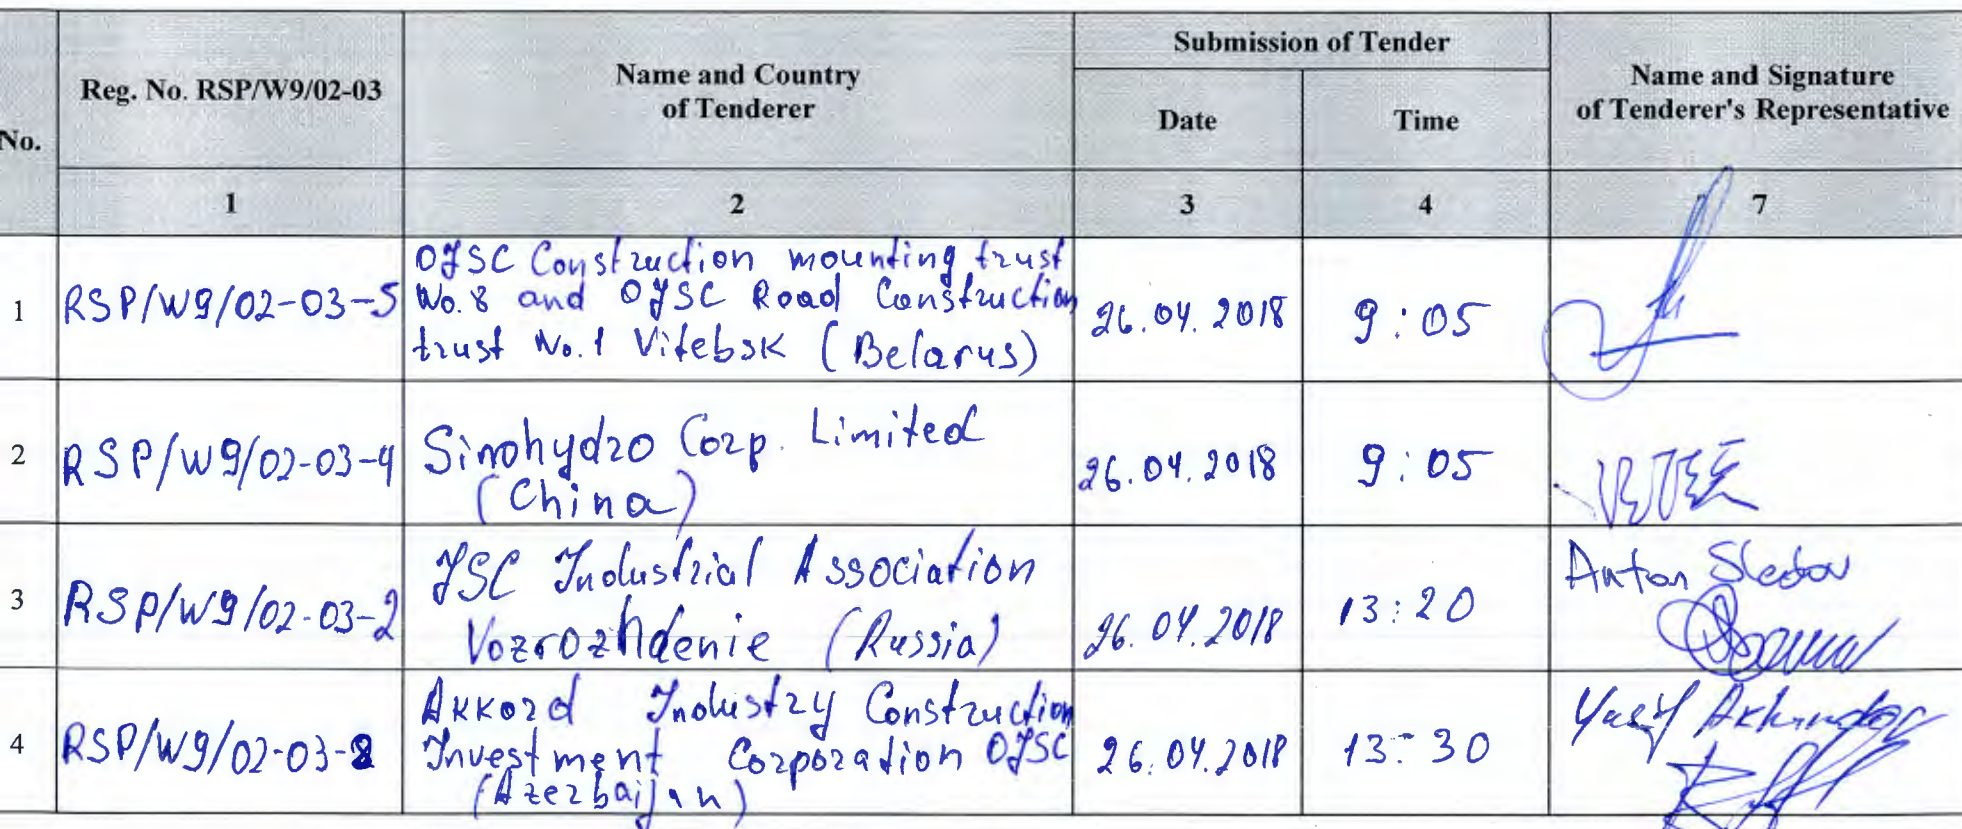 No.
Reg. No. RSP/W9/02-03
Name and Country
of Tenderer
Submission of Tender
Date
Time
Name and Signature
of Tenderer's Representative
1
2
3
4
7
1
RSP/W9/02-03-5
OJSC Construction mounting trust
No. 8 and OJSC Road Construction
trust No. 1 Vitebsk (Belarus)
26.04.2018
9:05
2
RSP/W9/02-03-4
Sinohydro Corp. Limited
(China)
26.04.2018
9:05
3
RSP/W9/02-03-2
JSC Industrial Association
Vozrozhdenie (Russia)
26.04.2018
13:20
Anton Sledov
4
RSP/W9/02-03-8
Akkord Industry Construction
Investment Corporation OJSC
(Azerbaijan)
26.04.2018
13:30